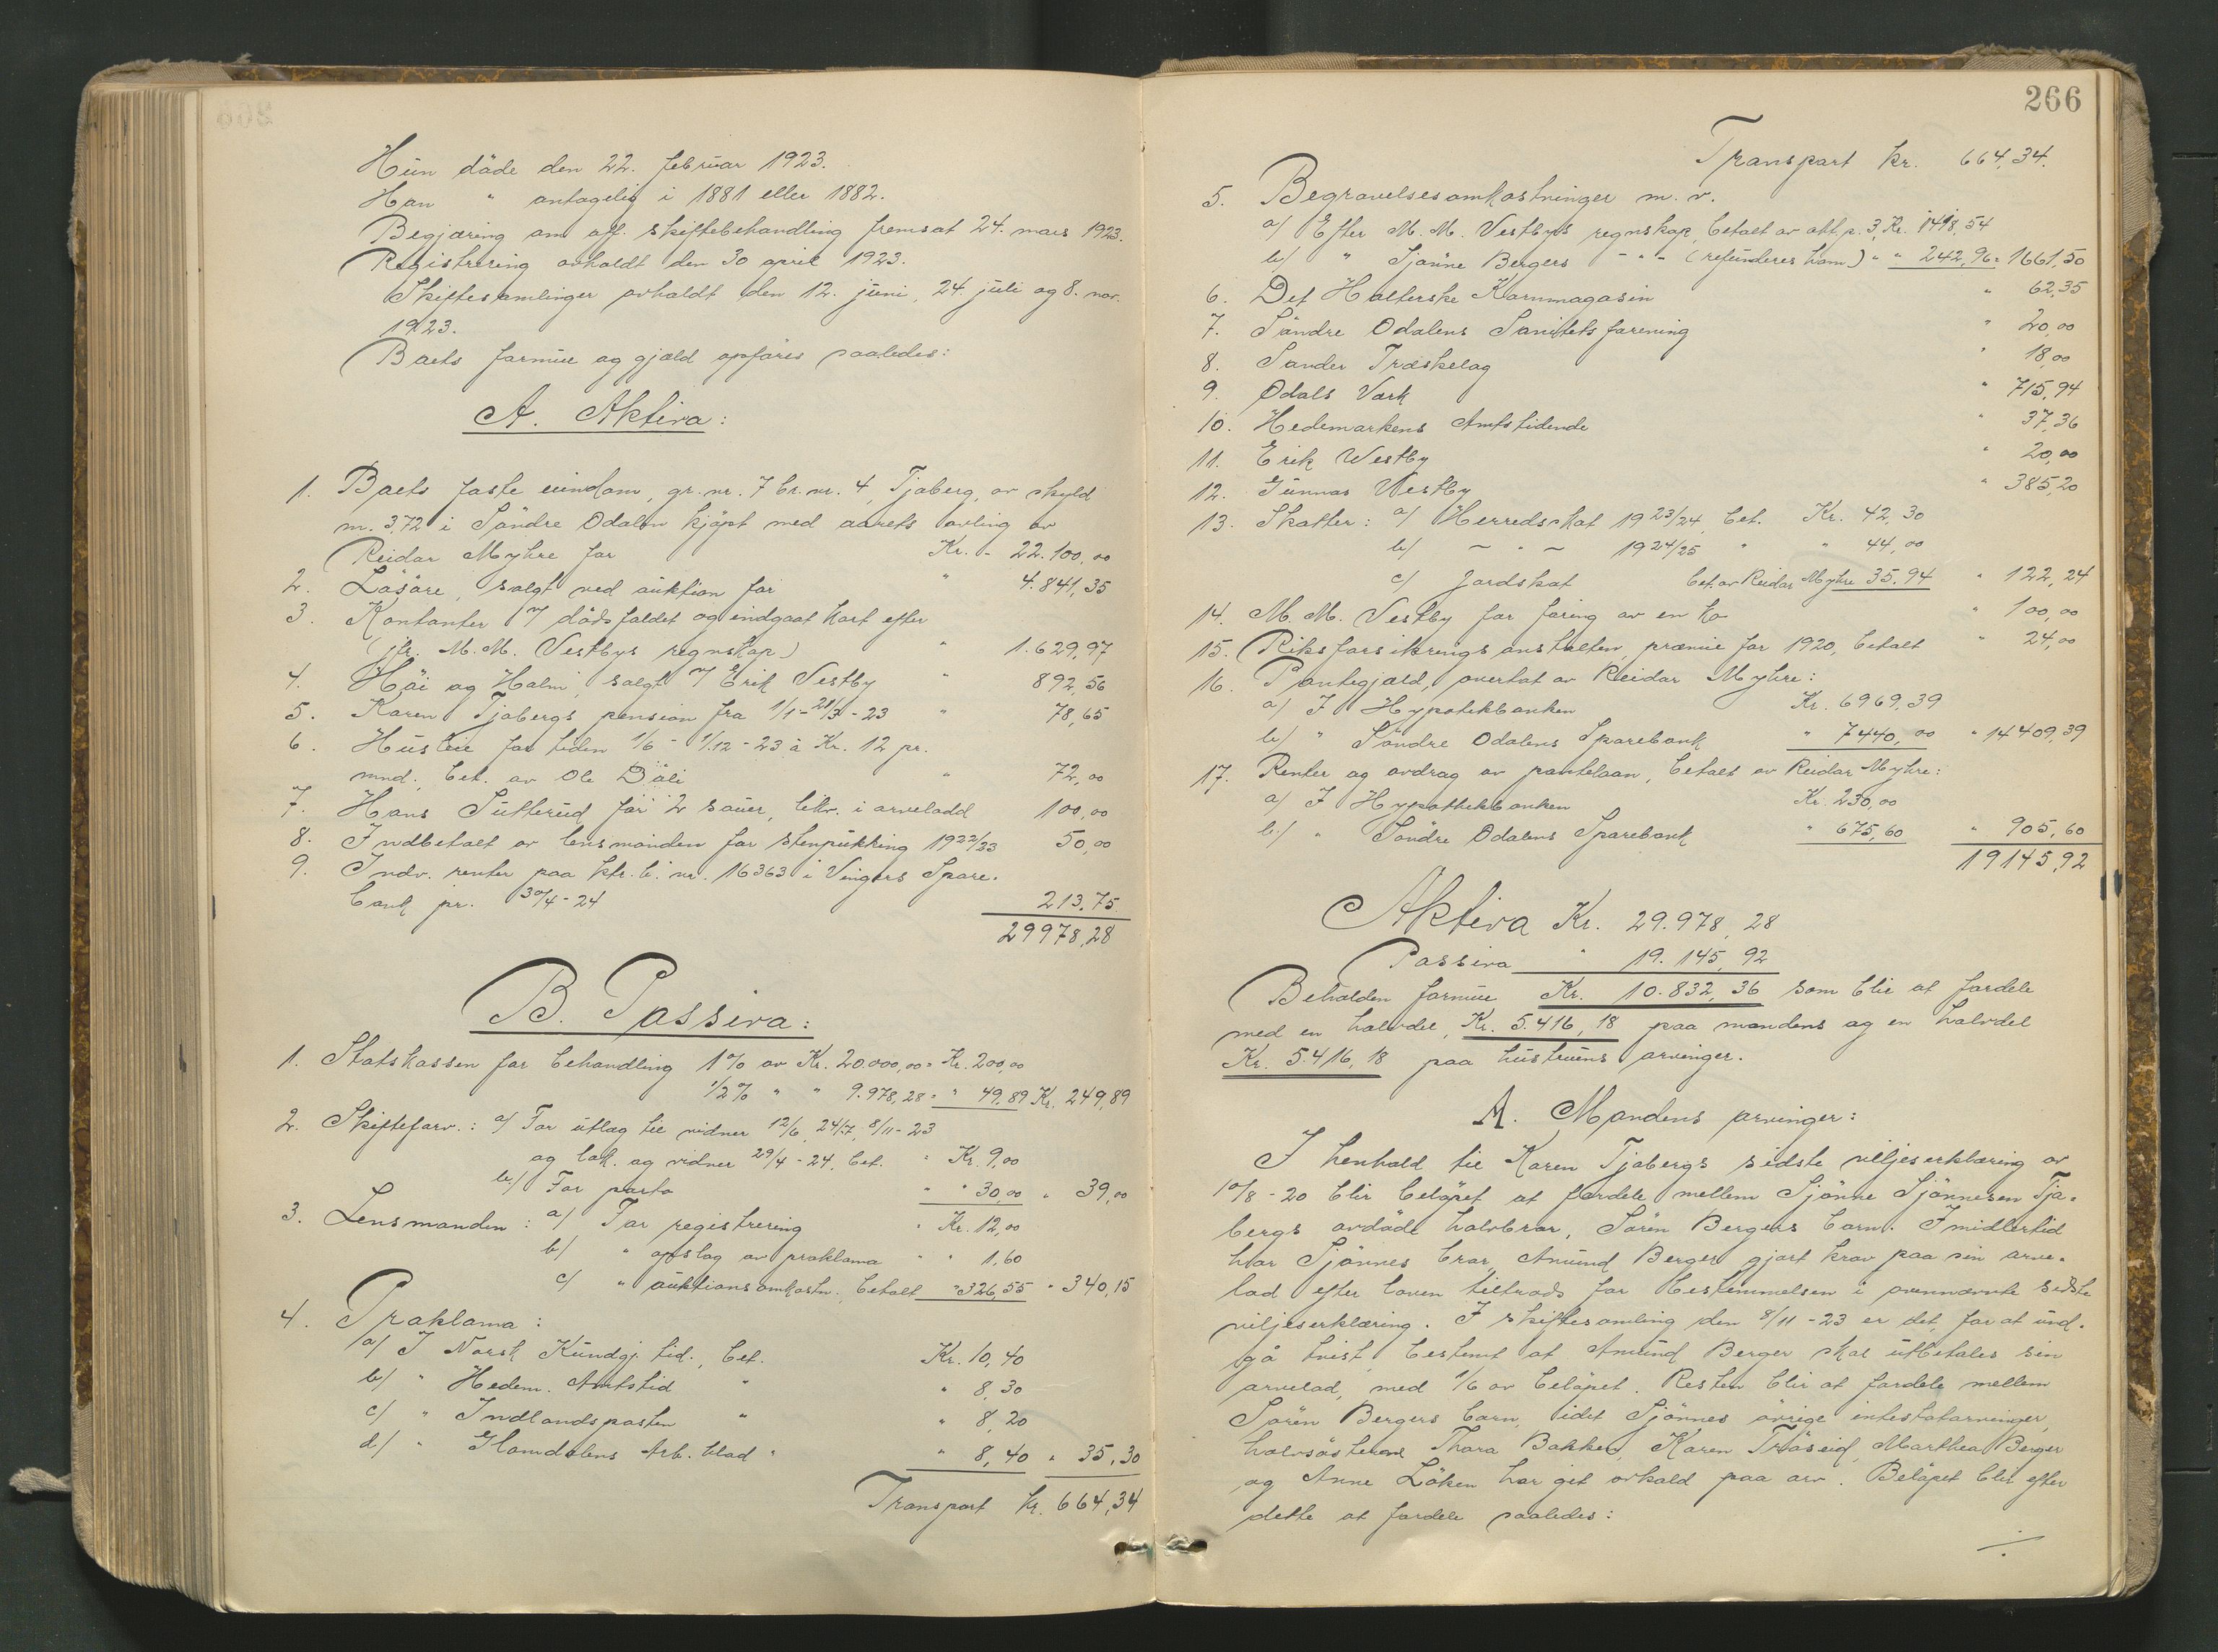 Hun döde den 22. februar 1923.
Han " antagelig i 1881 eller 1882.
Begjæring om off. skiftebehandling fremsat 24. mars 1923.
Registrering avholdt den 30 april 1923.
Skiftesamlinger avholdt den 12. juni, 24. juli og 8. nov.
1923.
Boets formue og gjæld opföres saaledes:
A. Aktiva:
1. Boets faste eiendom, gr. nr. 7 br. nr. 4, Tjaberg, av skyld
m. 3,72 i Söndre Odalen kjöpt med aarets avling av
Reidar Myhre for Kr. - 22.100,00
2. Lösöre, solgt ved auktion for " 4.841,35
3. Kontanter v/ dödsfaldet og indgaat kort efter
(jfr. M. M. Vestbys regnskap) " 1.629,97
4. Höi og Halm, solgt t/ Erik Vestby " 892,56
5. Karen Tjabergs pension fra 1/1 - 21/3 - 23 " 78,65
6. Husleie for tiden 1/6 - 1/12 - 23 à Kr. 12 pr.
mnd., bet. av Ole Döli " 72,00
7. Hans Sutterud for 2 sauer, likv. i arvelodd 100,00
8. Indbetalt av lensmanden for stenpukking 1922/23 50,00
9. Indv. renter paa ktr. b. nr. 16363 i Vingers Spare-
bank pr. 30/4 - 24 213,75
29978,28
B. Passiva:
1. Statskassen for behandling 1% av Kr. 20.000,00 = Kr. 200,00
1/2% " " 9.978,28 = " 49,89 Kr. 249,89
2. Skifteforv.: a/ For utlæg til vidner 12/6, 24/7, 8/11 - 23
og lok. og vidner 29/4 - 24, bet. " Kr. 9,00
b/ For porto " " 30,00 " 39,00
3. Lensmanden: a/ For registrering " Kr. 12,00
b/ " opslag av proklama " " 1,60
c/ " auktionsomkostn. betalt " 326,55 " 340,15
4. Proklama:
a/ I Norsk Kundgj. tid., bet. Kr. 10,40
b/ " Hedem. Amtstid " " 8,30
c/ " Indlandsposten " " 8,20
d/ " Glomdalens Arb. blad " " 8,40 " 35,30
Transport kr. 664,34
266
Transport kr. 664,34.
5. Begravelsesomkostninger m. v.
a/ Efter M. M. Vestbys regnskap, betalt av akt. p. 3, Kr. 1418,54
b/ " Sjönne Bergers - " - (refunderes ham) " " 242,96 = 1661,50
6. Det Holterske Kornmagasin " 62,35
7. Söndre Odalens Sanitetsforening " 20,00
8. Sander Træskelag " 18,00
9. Odals Værk " 715,94
10. Hedemarkens Amtstidende " 37,36
11. Erik Westby " 20,00
12. Gunnar Westby " 385,20
13. Skatter: a/ Herredsskat 1923/24, bet. Kr. 42,30
b/ - " - 1924/25 " " 44,00
c/ Jordskat bet. av Reidar Myhre 35,94 " 122,24
14. M. M. Vestby for foring av en ko " 100,00
15. Riksforsikringsanstalten, præmie for 1920, betalt " 24,00
16. Pantegjæld, overtat av Reidar Myhre:
a/ I Hypotekbanken Kr. 6969,39
b/ " Söndre Odalens Sparebank " 7440,00 " 14409,39
17. Renter og avdrag av pantelaan, betalt av Reidar Myhre:
a/ I Hypothekbanken Kr. 230,00
b/ " Söndre Odalens Sparebank " 675,60 " 905,60
19145,92
Aktiva Kr. 29.978,28
Passiva " 19.145,92
Beholden formue Kr. 10.832,36 som blir at fordele
med en halvdel, Kr. 5.416,18 paa mandens og en halvdel
Kr. 5.416,18 paa hustruens arvinger.
A. Mandens arvinger:
I henhold til Karen Tjabergs sidste viljeserklæring av
10/8 - 20 blir belöpet at fordele mellem Sjönne Sjönnesen Tja-
bergs avdöde halvbror, Sören Bergers barn. Imidlertid
har Sjönnes bror, Amund Berger gjort krav paa sin arve-
lod efter loven tiltrods for bestemmelsen i ovennævnte sidste
viljeserklæring. I skiftesamling den 8/11 - 23 er det, for at und-
gå tvist, bestemt at Amund Berger skal utbetales sin
arvelod, med 1/6 av belöpet. Resten blir at fordele mellem
Sören Bergers barn, idet Sjönnes övrige intestatarvinger,
halvsöstrene Thora Bakken, Karen Tröseid, Marthea Berger
og Anne Löken har git avkald paa arv. Belöpet blir efter
dette at fordele saaledes: